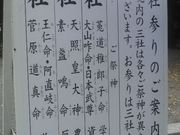 社参のご案内
内の三社は各々ご祭神が異
ざいます。お参りは三社
ご祭神
社
菟道稚郎子命・学
大山咋命・日本武尊
社
天照皇大神
素盞鳴命
社
王仁命・阿直岐命
菅原道真命